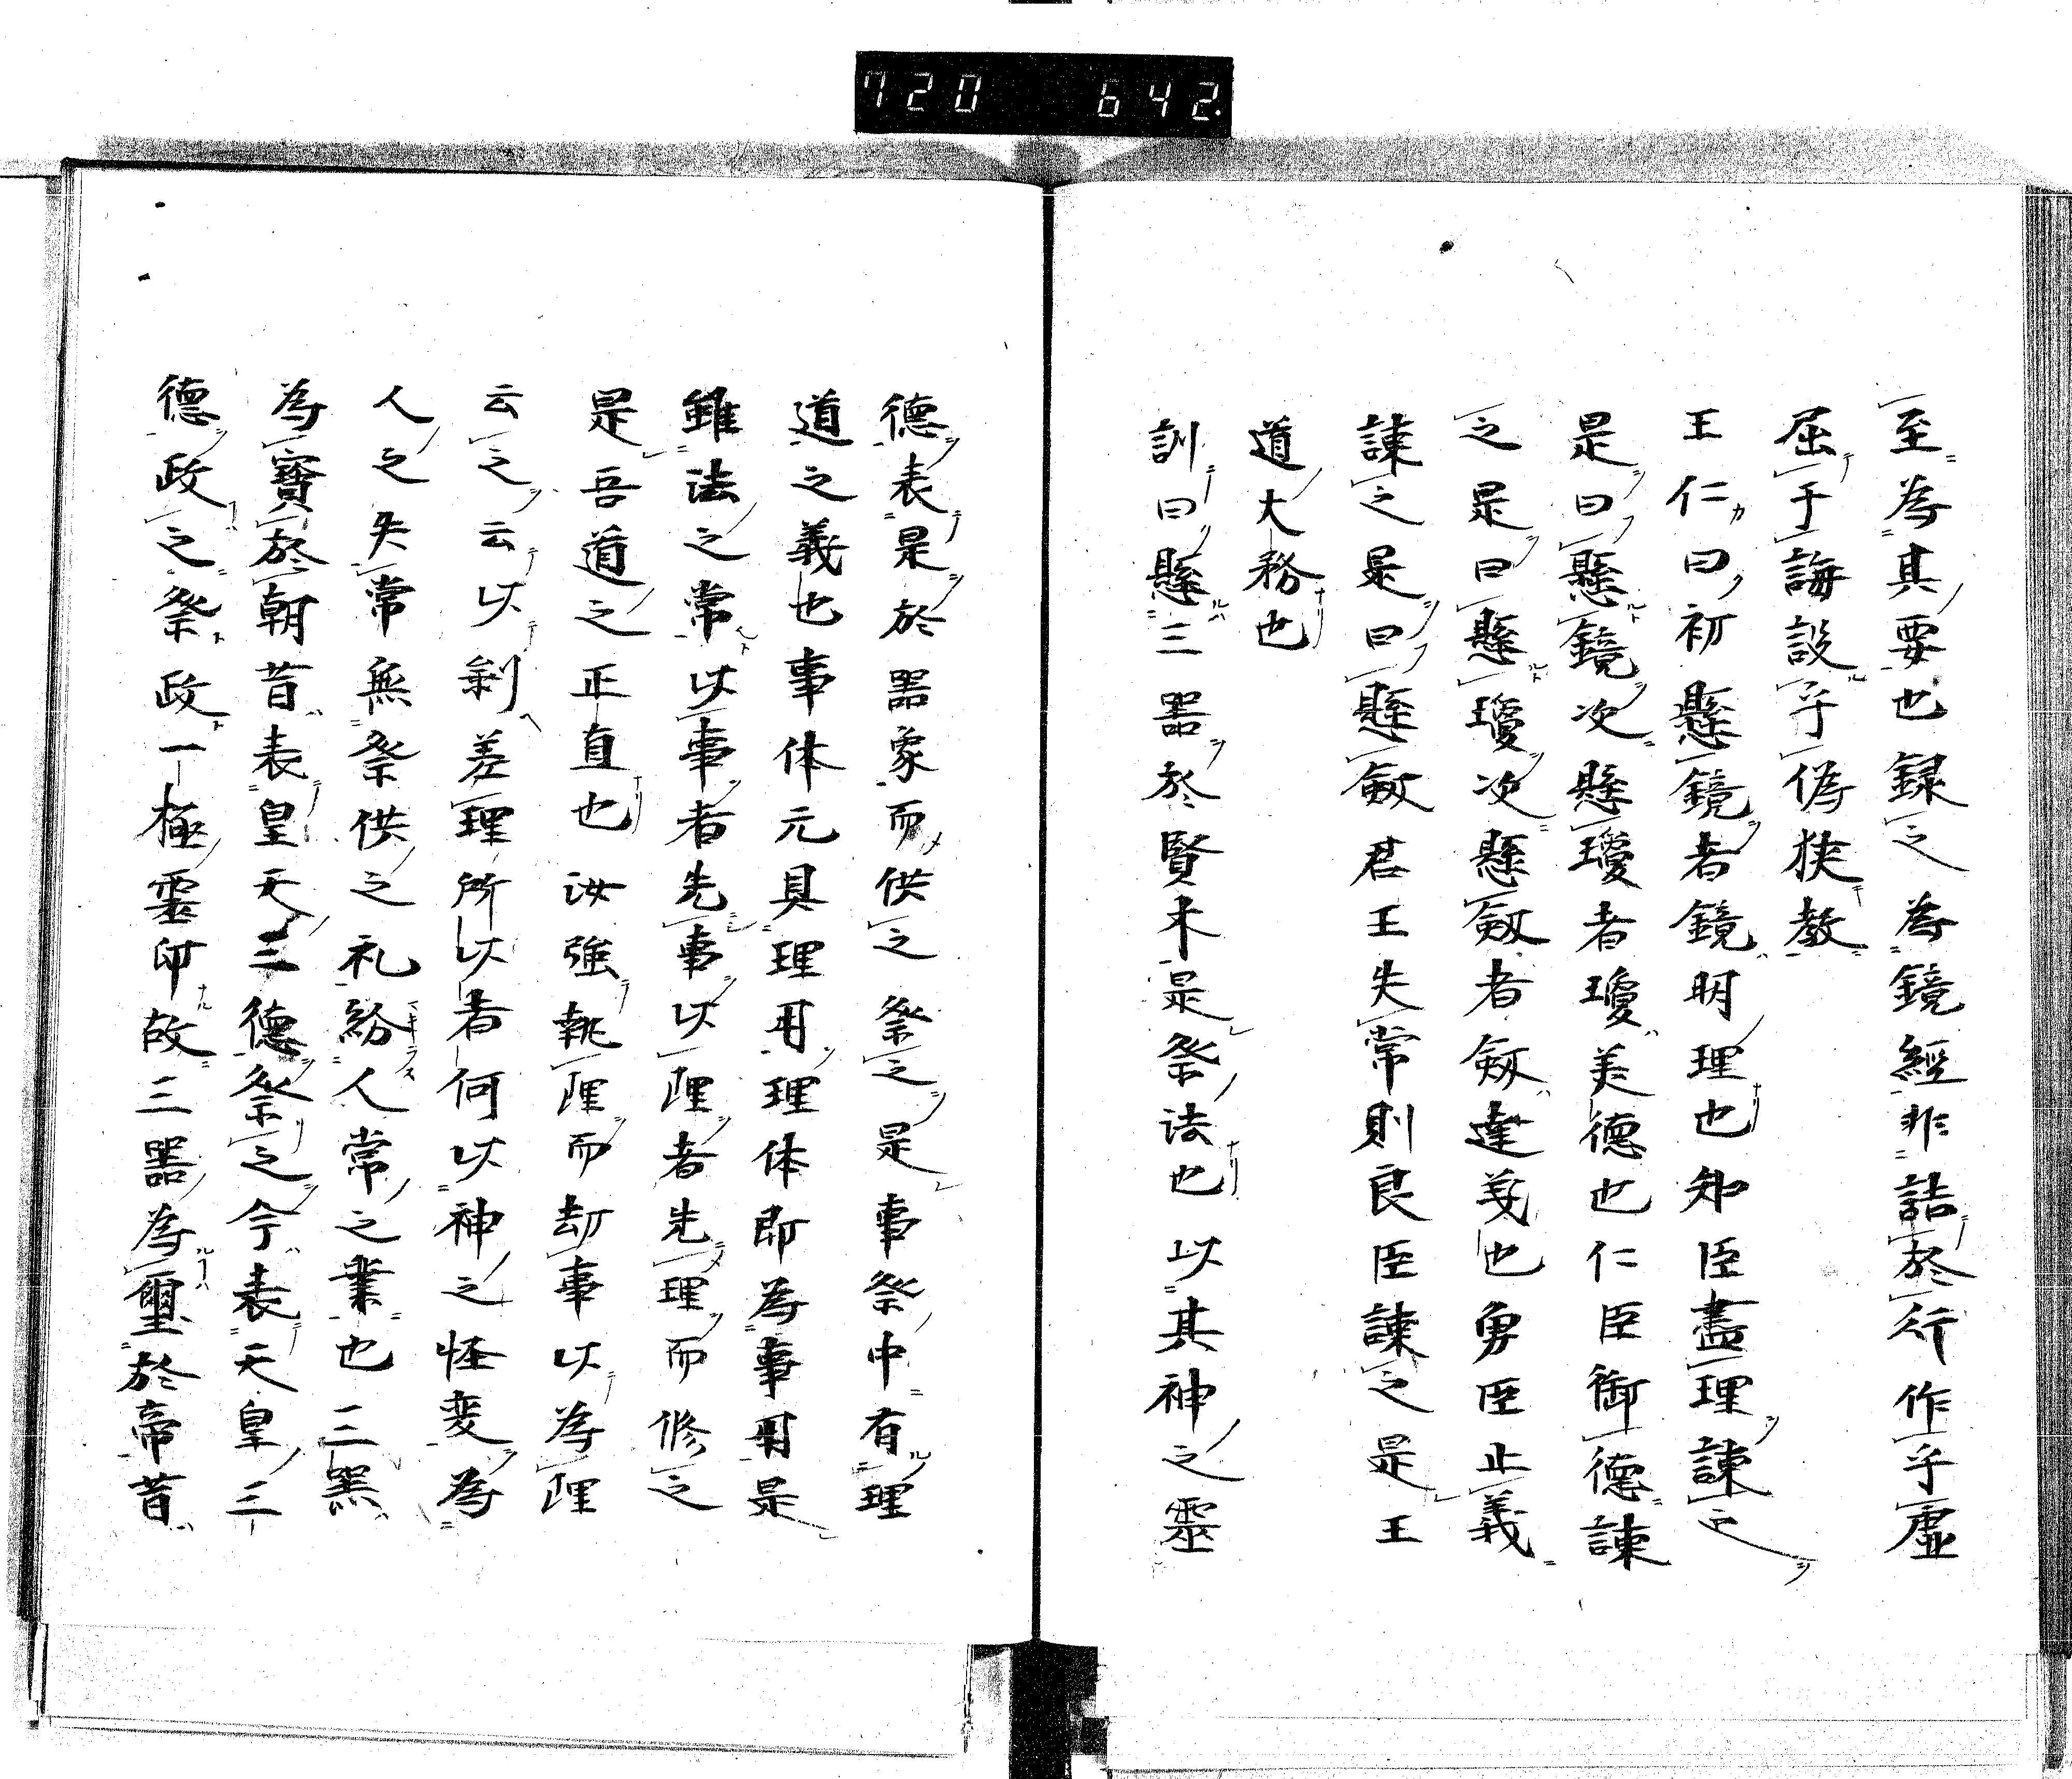 720 642
至為其要也録之為鏡經非詰於行作乎虛
屈于誨設乎偽狭教
王仁曰初懸鏡者鏡明理也知臣盡理諫之
是曰懸鏡次懸瓊者瓊美德也仁臣御德諫
之是曰懸瓊次懸劔者劔達義也勇臣止義
諫之是曰懸劔君王失常則良臣諫之是王
道大務也
訓曰懸三器於賢木是祭法也以其神之靈
德表是於器象而供之祭之是事祭中有理
道之義也事体元具理用理体即為事用是
雖法之常以事者先事以理者先理而修之
是吾道之正直也汝強執理而劫事以為理
云之云以剝差理所以者何以神之怪変為
人之失常無祭供之礼紛人常之業也三器
為寶於朝昔表皇天三德祭之今表天皇三
德政之祭政一極靈印故三器為璽於帝昔